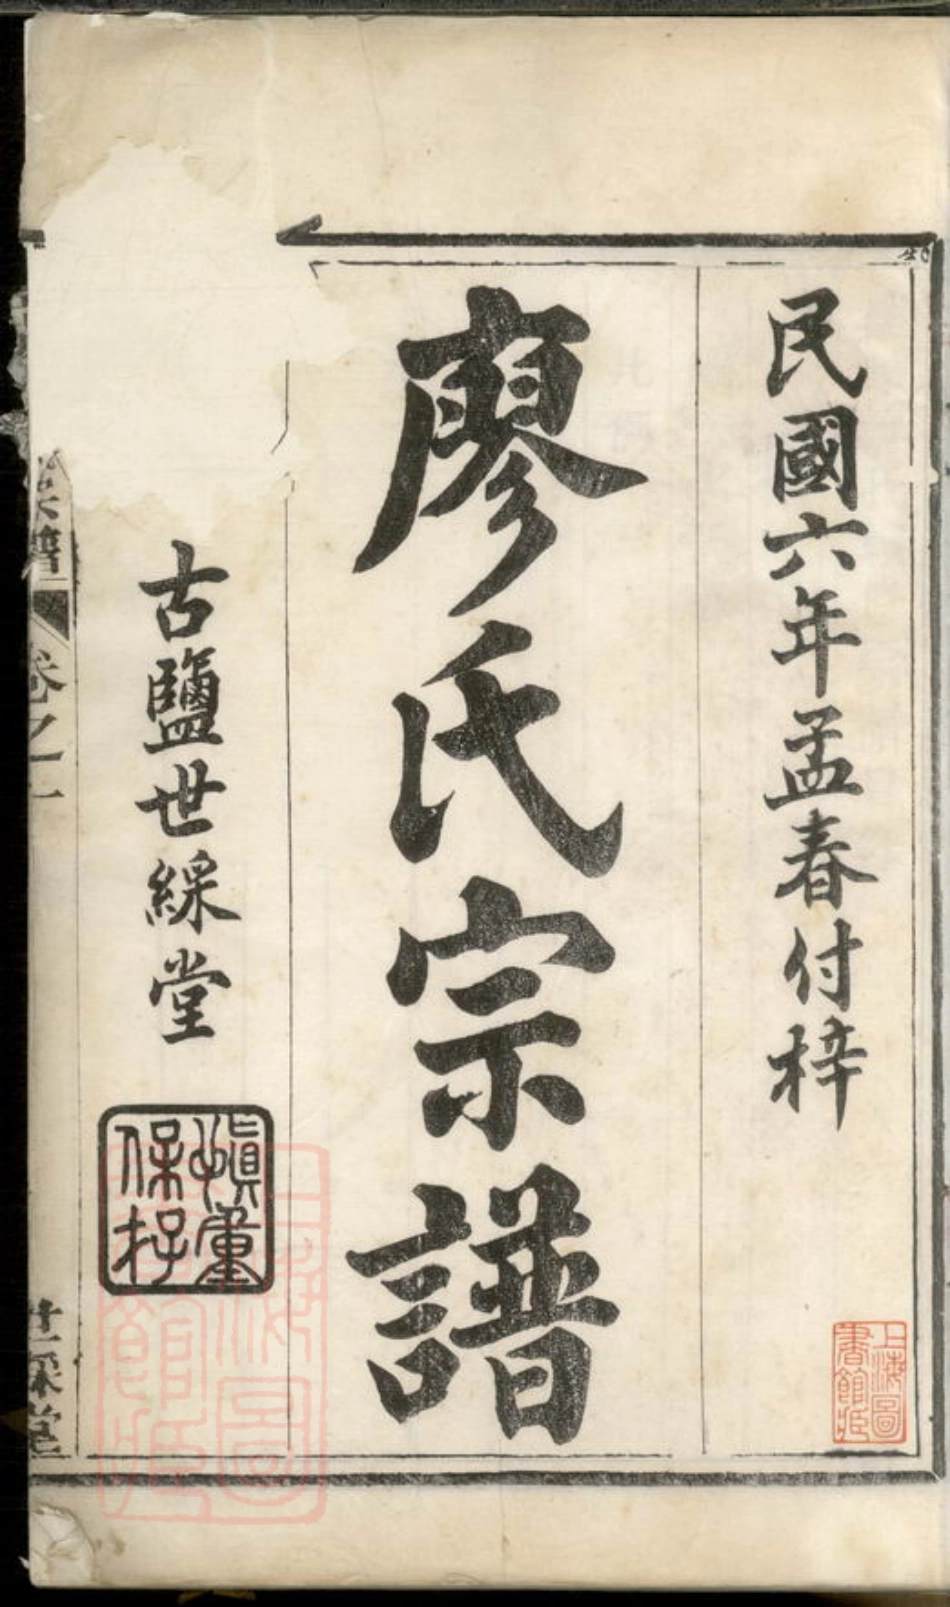 民國六年孟春付梓
廖氏宗譜
古鹽世綵堂
慎重
保存
上海圖
書館藏
譜
卷之一
世綵堂